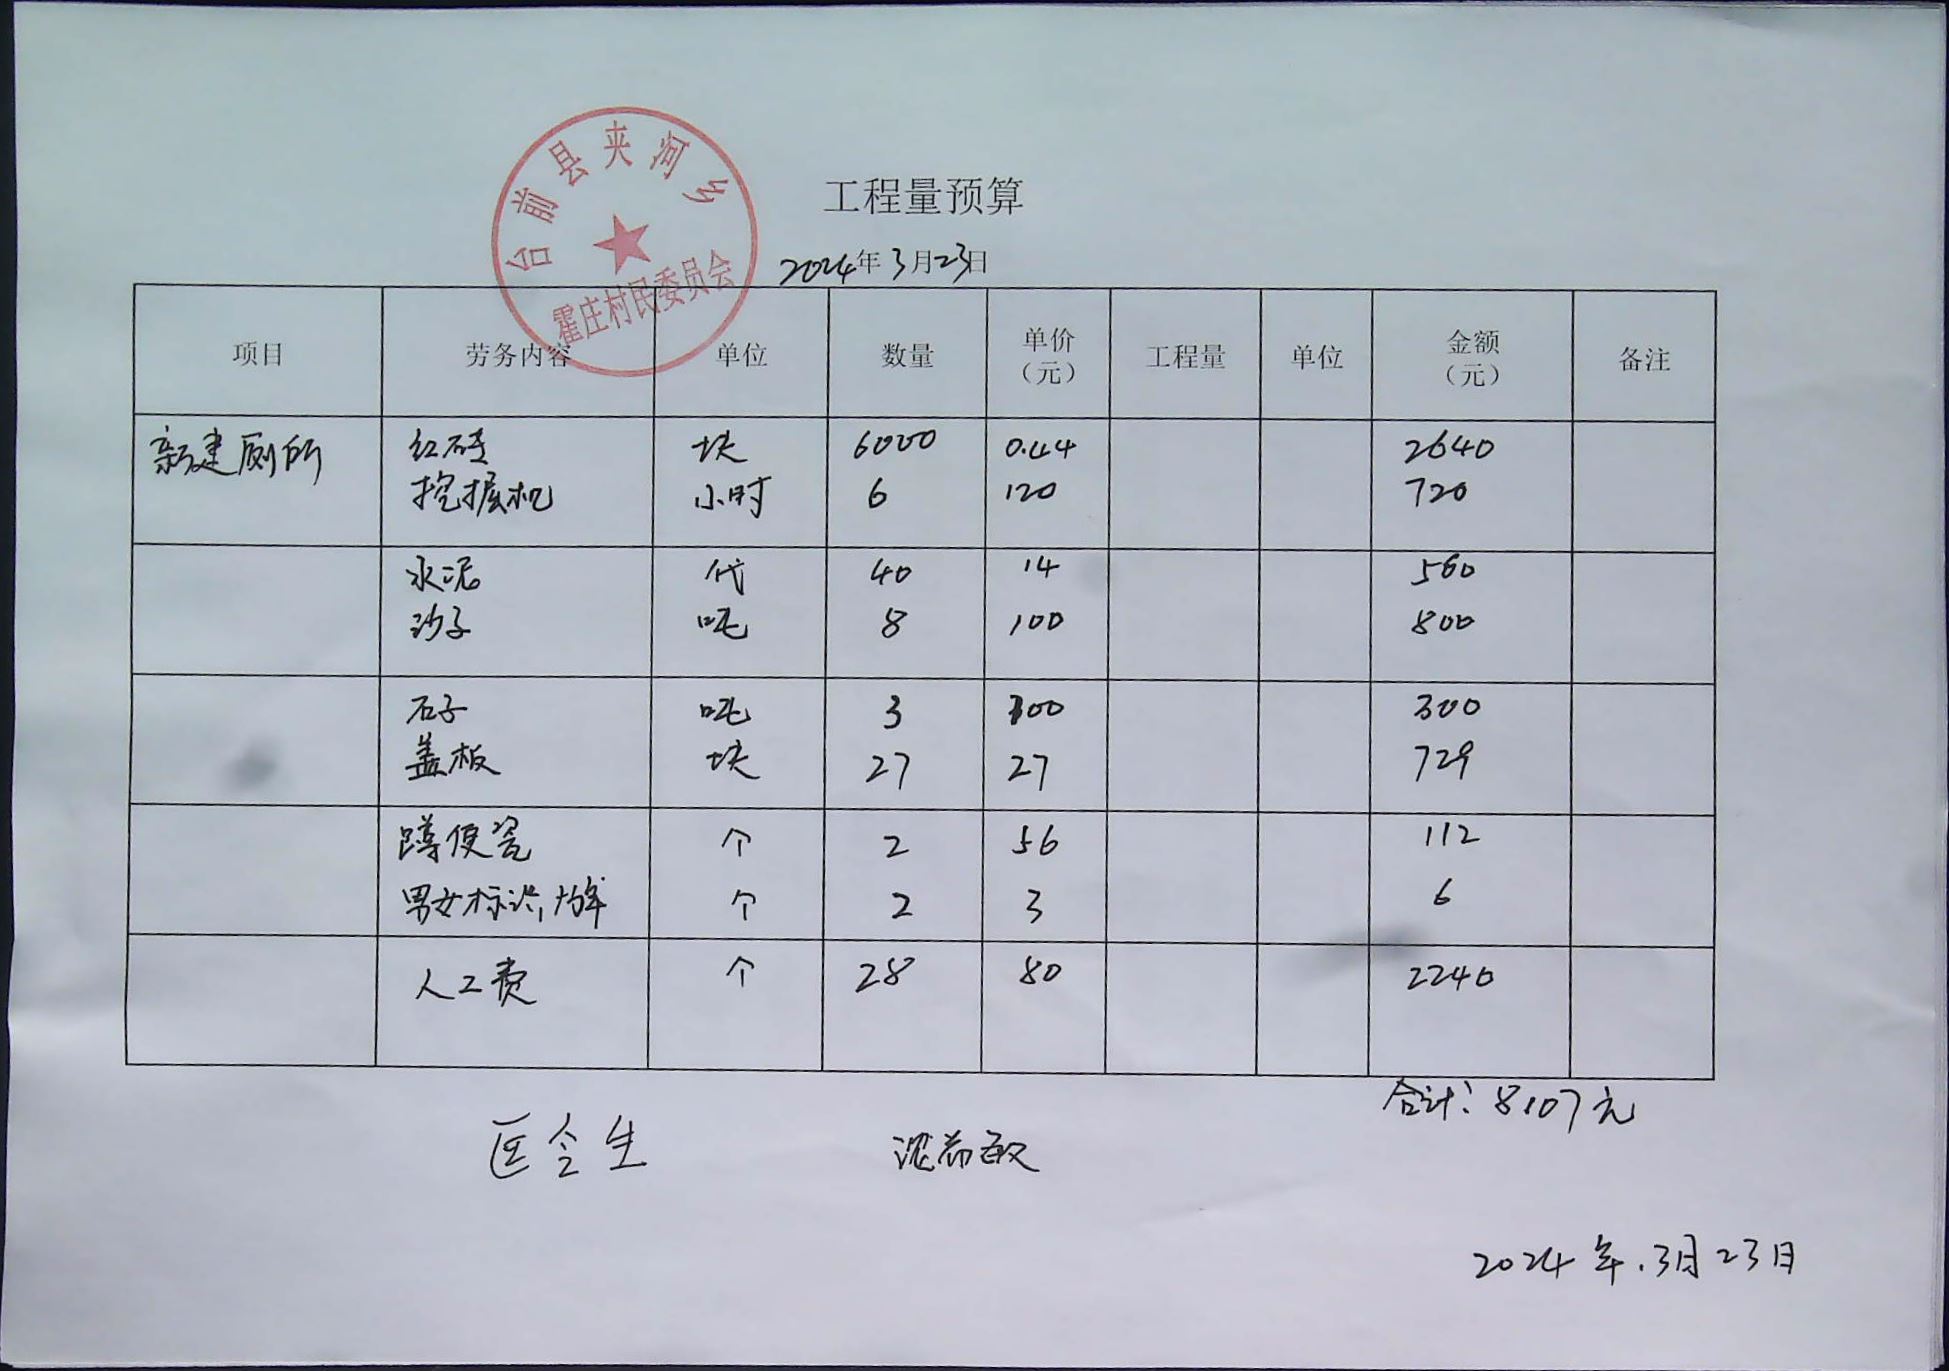 台前县夹河乡
霍庄村民委员会
工程量预算
2024年3月23日
项目 劳务内容 单位 数量 单价（元） 工程量 单位 金额（元） 备注
新建厕所 红砖 块 6000 0.44 2640
挖掘机 小时 6 120 720
水泥 代 40 14 560
沙子 吨 8 100 800
石子 吨 3 100 300
盖板 块 27 27 729
蹲便瓷 个 2 56 112
男女标识 个 2 3 6
人工费 个 28 80 2240
合计：8107元
2024年.3月23日